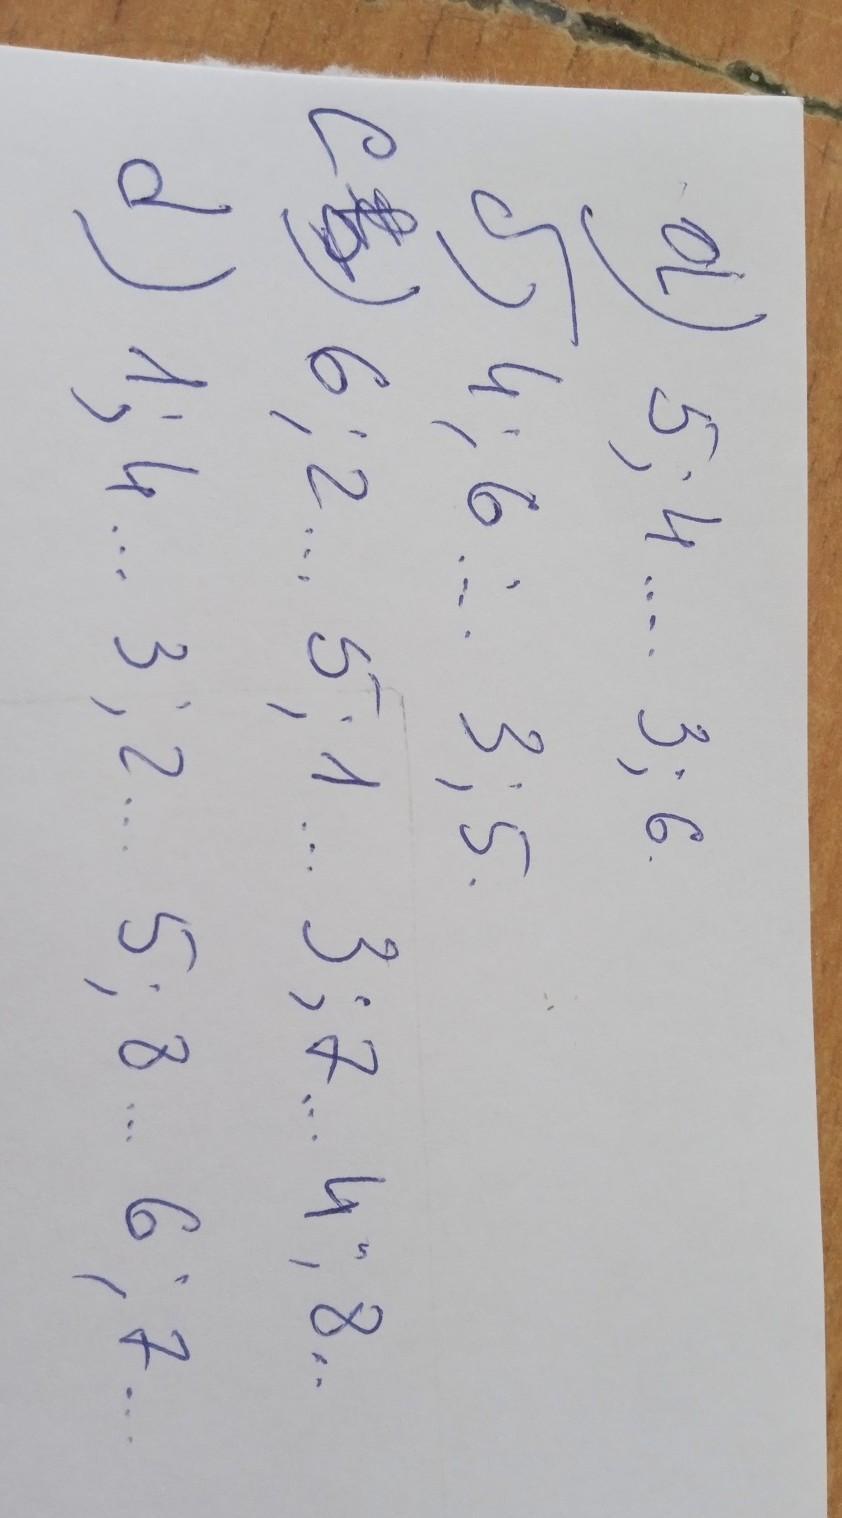 a) 5; 4.... 3; 6.
б) 4; 6.... 3; 5.
c) 6; 2... 5; 1... 3; 7... 4; 8..
d) 1; 4... 3; 2... 5; 8... 6; 7...